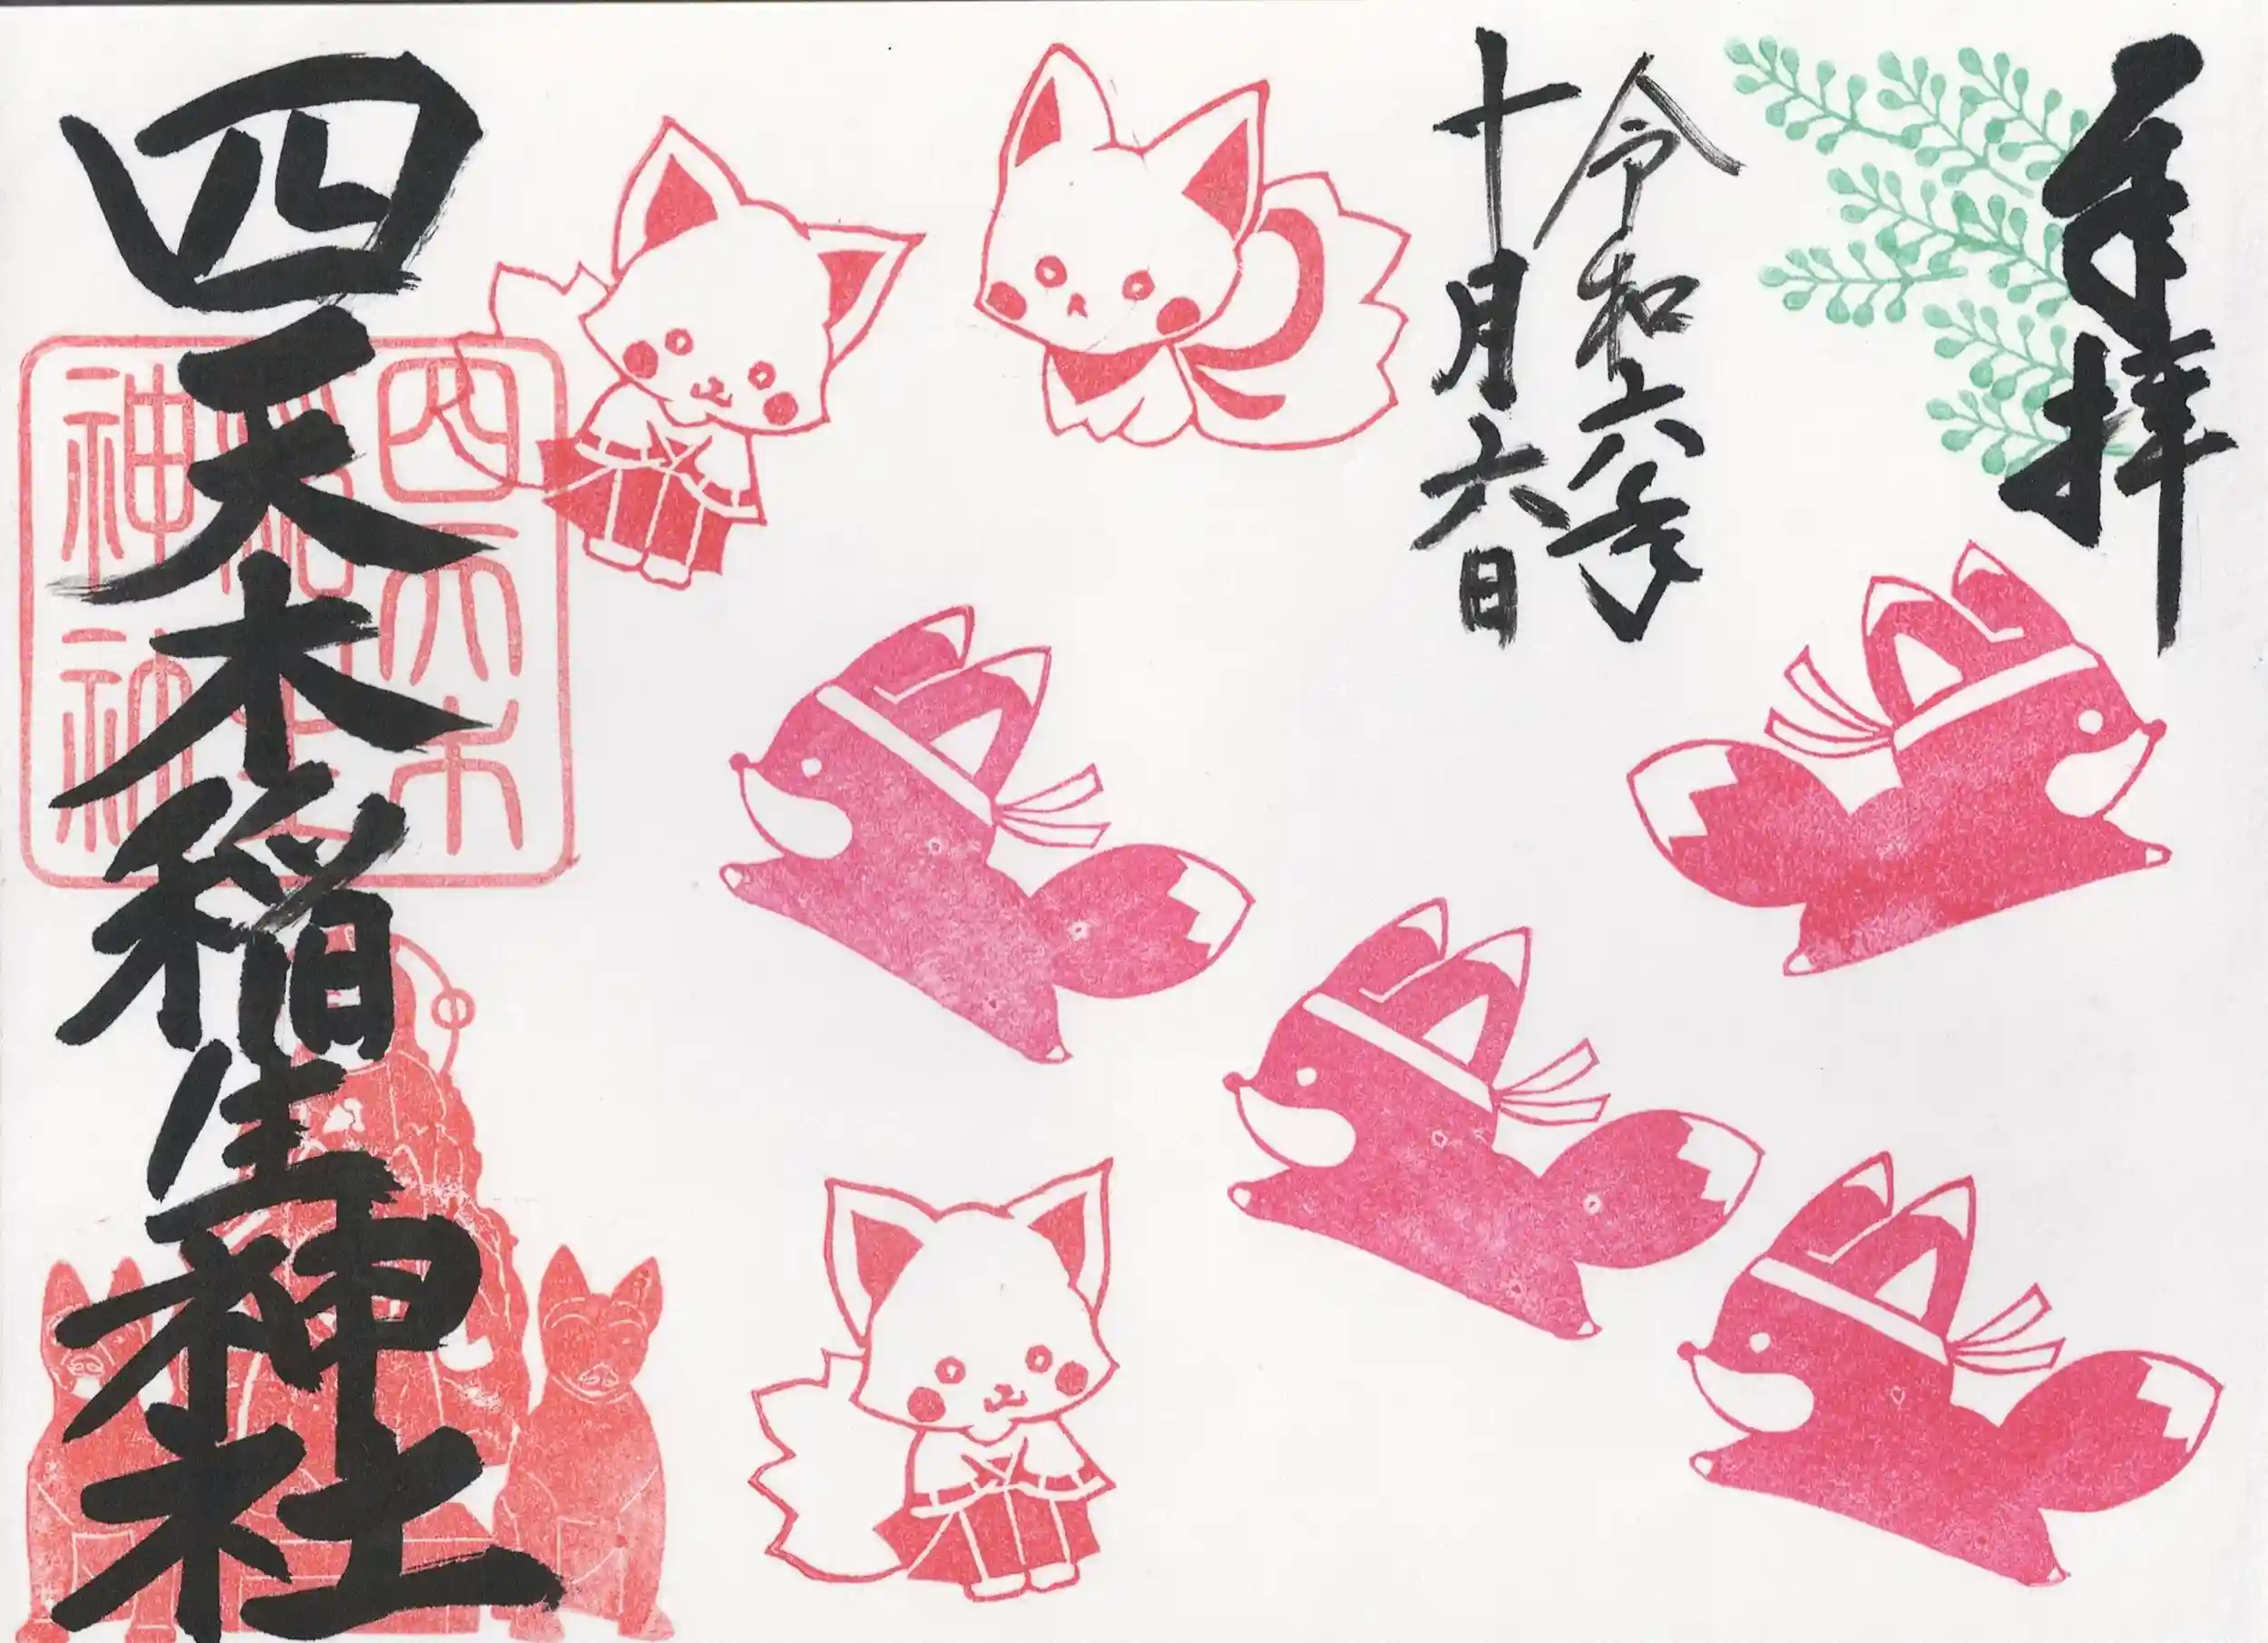 奉拝
令和六年
十月六日
四天木稲生神社
四天木
神